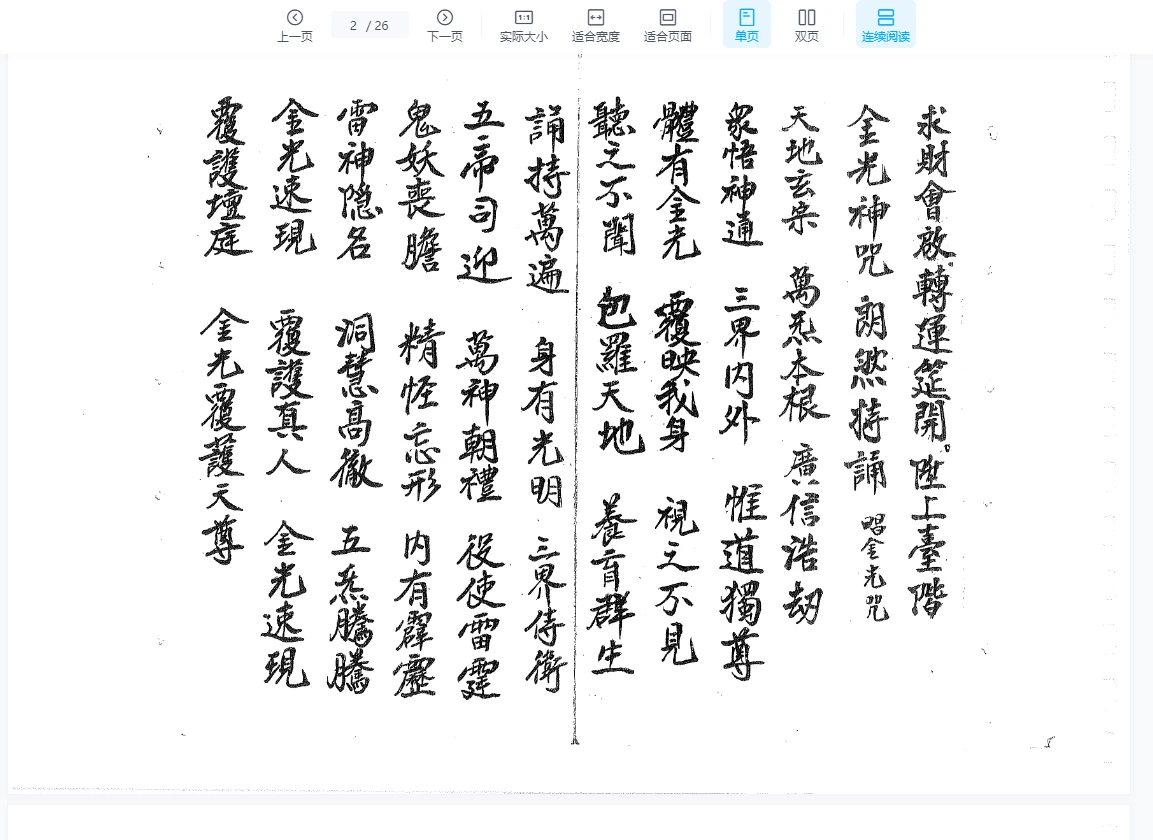 上一页
2 / 26
下一页
1:1
实际大小
适合宽度
适合页面
单页
双页
连续阅读
求財會啟轉運筵開陞上臺階
金光神咒 朗然持誦 唱金光咒
天地玄宗 萬炁本根 廣信浩劫
眾悟神通 三界内外 惟道獨尊
體有金光 覆映我身 視之不見
聽之不聞 包羅天地 養育群生
誦持萬遍 身有光明 三界侍衛
五帝司迎 萬神朝禮 役使雷霆
鬼妖喪膽 精怪忘形 内有霹靂
雷神隐名 洞慧高徹 五炁騰騰
金光速現 覆護真人 金光速現
覆護壇庭 金光覆護天尊